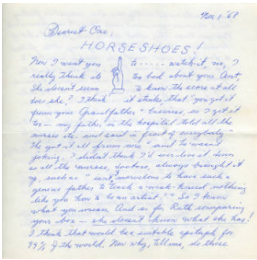 Nov. 1 '68
Dearest One,
HORSESHOES!
Now I want you to ..... watch it, no, I
really think its too bad about your Aunt,
she doesnt seem to know the score at all
does she! I think it stinks, that "you got it
from your Grandfather" business is I got it
too - my father in the hospital told all the
nurses etc. and said in front of everybody
"She got it all from me" and he wasnt
joking. I didnt think I'd ever live it down
as all the nurses, doctors, always brought it
up, such as "Isnt marvelous to have such a
genius father to teach a weak-kneed nothing
like you how to be an artist". So I know
what you mean. And as for Ruth comparing
your box - she doesnt know what she has!
I think that would be a suitable epitaph for
99% of the world. Now why, tell me, do those